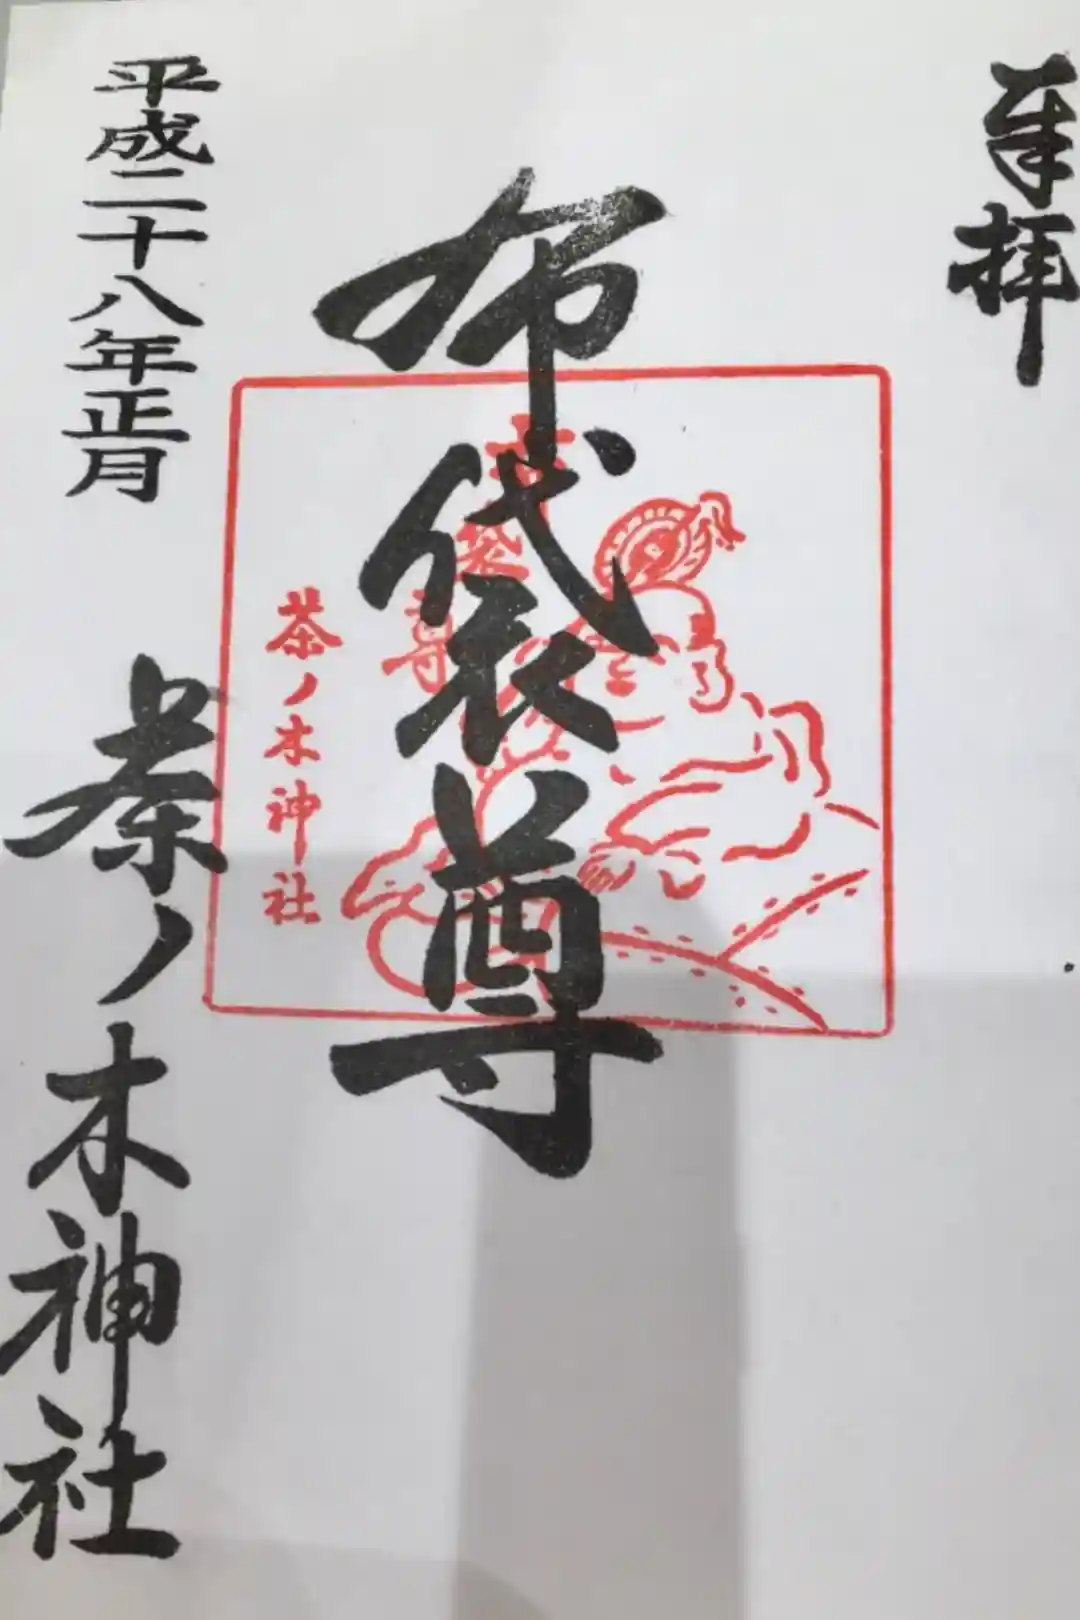 奉拝
布袋尊
布袋尊
茶ノ木神社
平成二十八年正月
茶ノ木神社